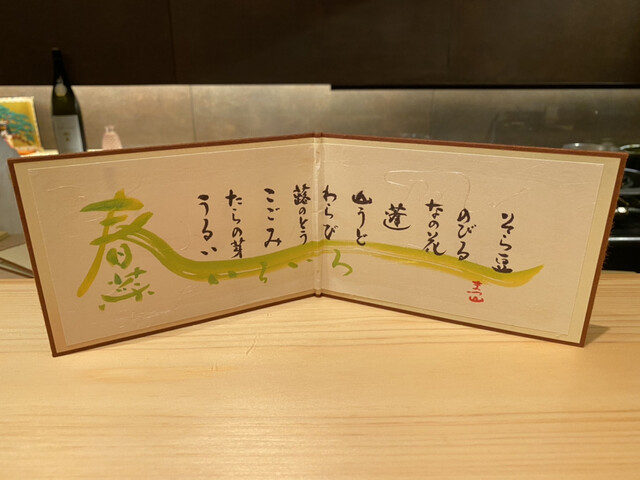 そら豆
のびる
なの花
蓬
山うど
わらび
蕗のとう
こごみ
たらの芽
うるい
春菜
いろいろ